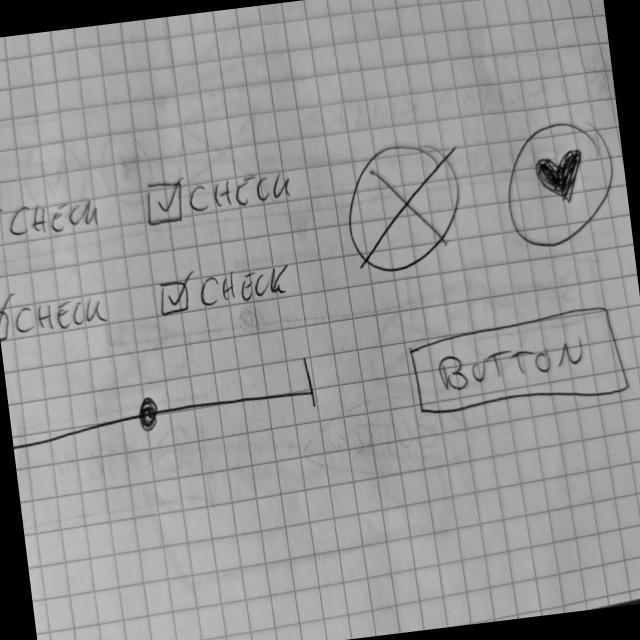 CHECK CHECK
CHECK CHECK
BUTTON